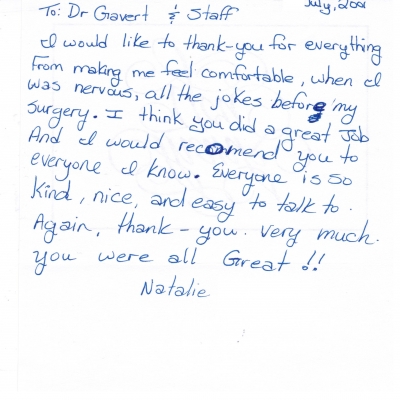 July, 200
To: Dr Gavert & Staff
I would like to thank-you for everything
From making me feel comfortable, when I
was nervous, all the jokes before my
surgery. I think you did a great job
And I would recomend you to
everyone I know. Everyone is so
kind, nice, and easy to talk to.
Again, thank-you. very much.
you were all Great !!
Natalie